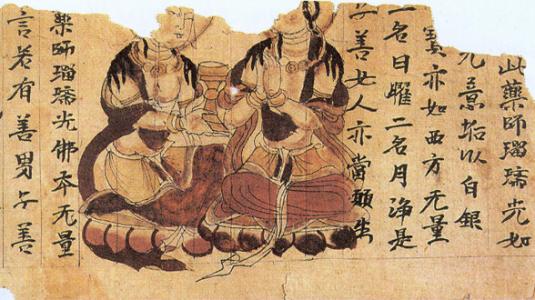 此藥師瑠璃光如
无意垢以白銀
寶亦如西方无量
一名日曜二名月淨是
子善女人亦當願生
藥師瑠璃光佛本无量
言若有善男子善